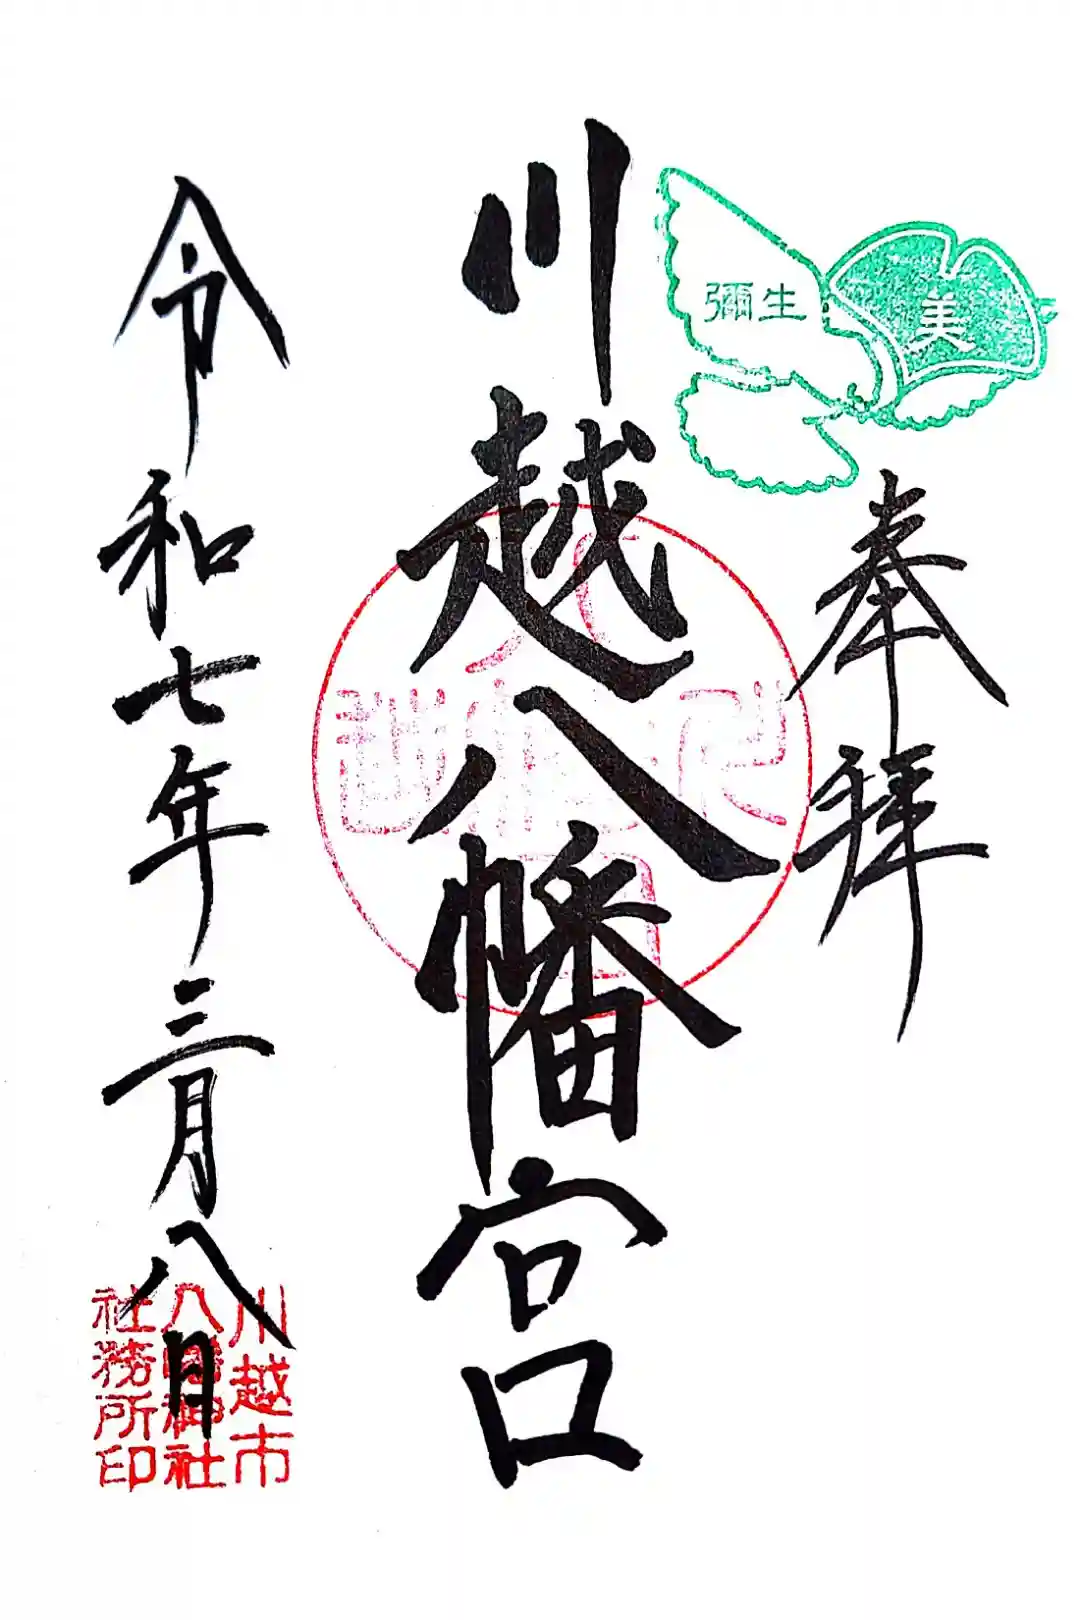 彌生
美
奉拝
川越八幡宮
令和七年三月八日
川越市
八幡神社
社務所印